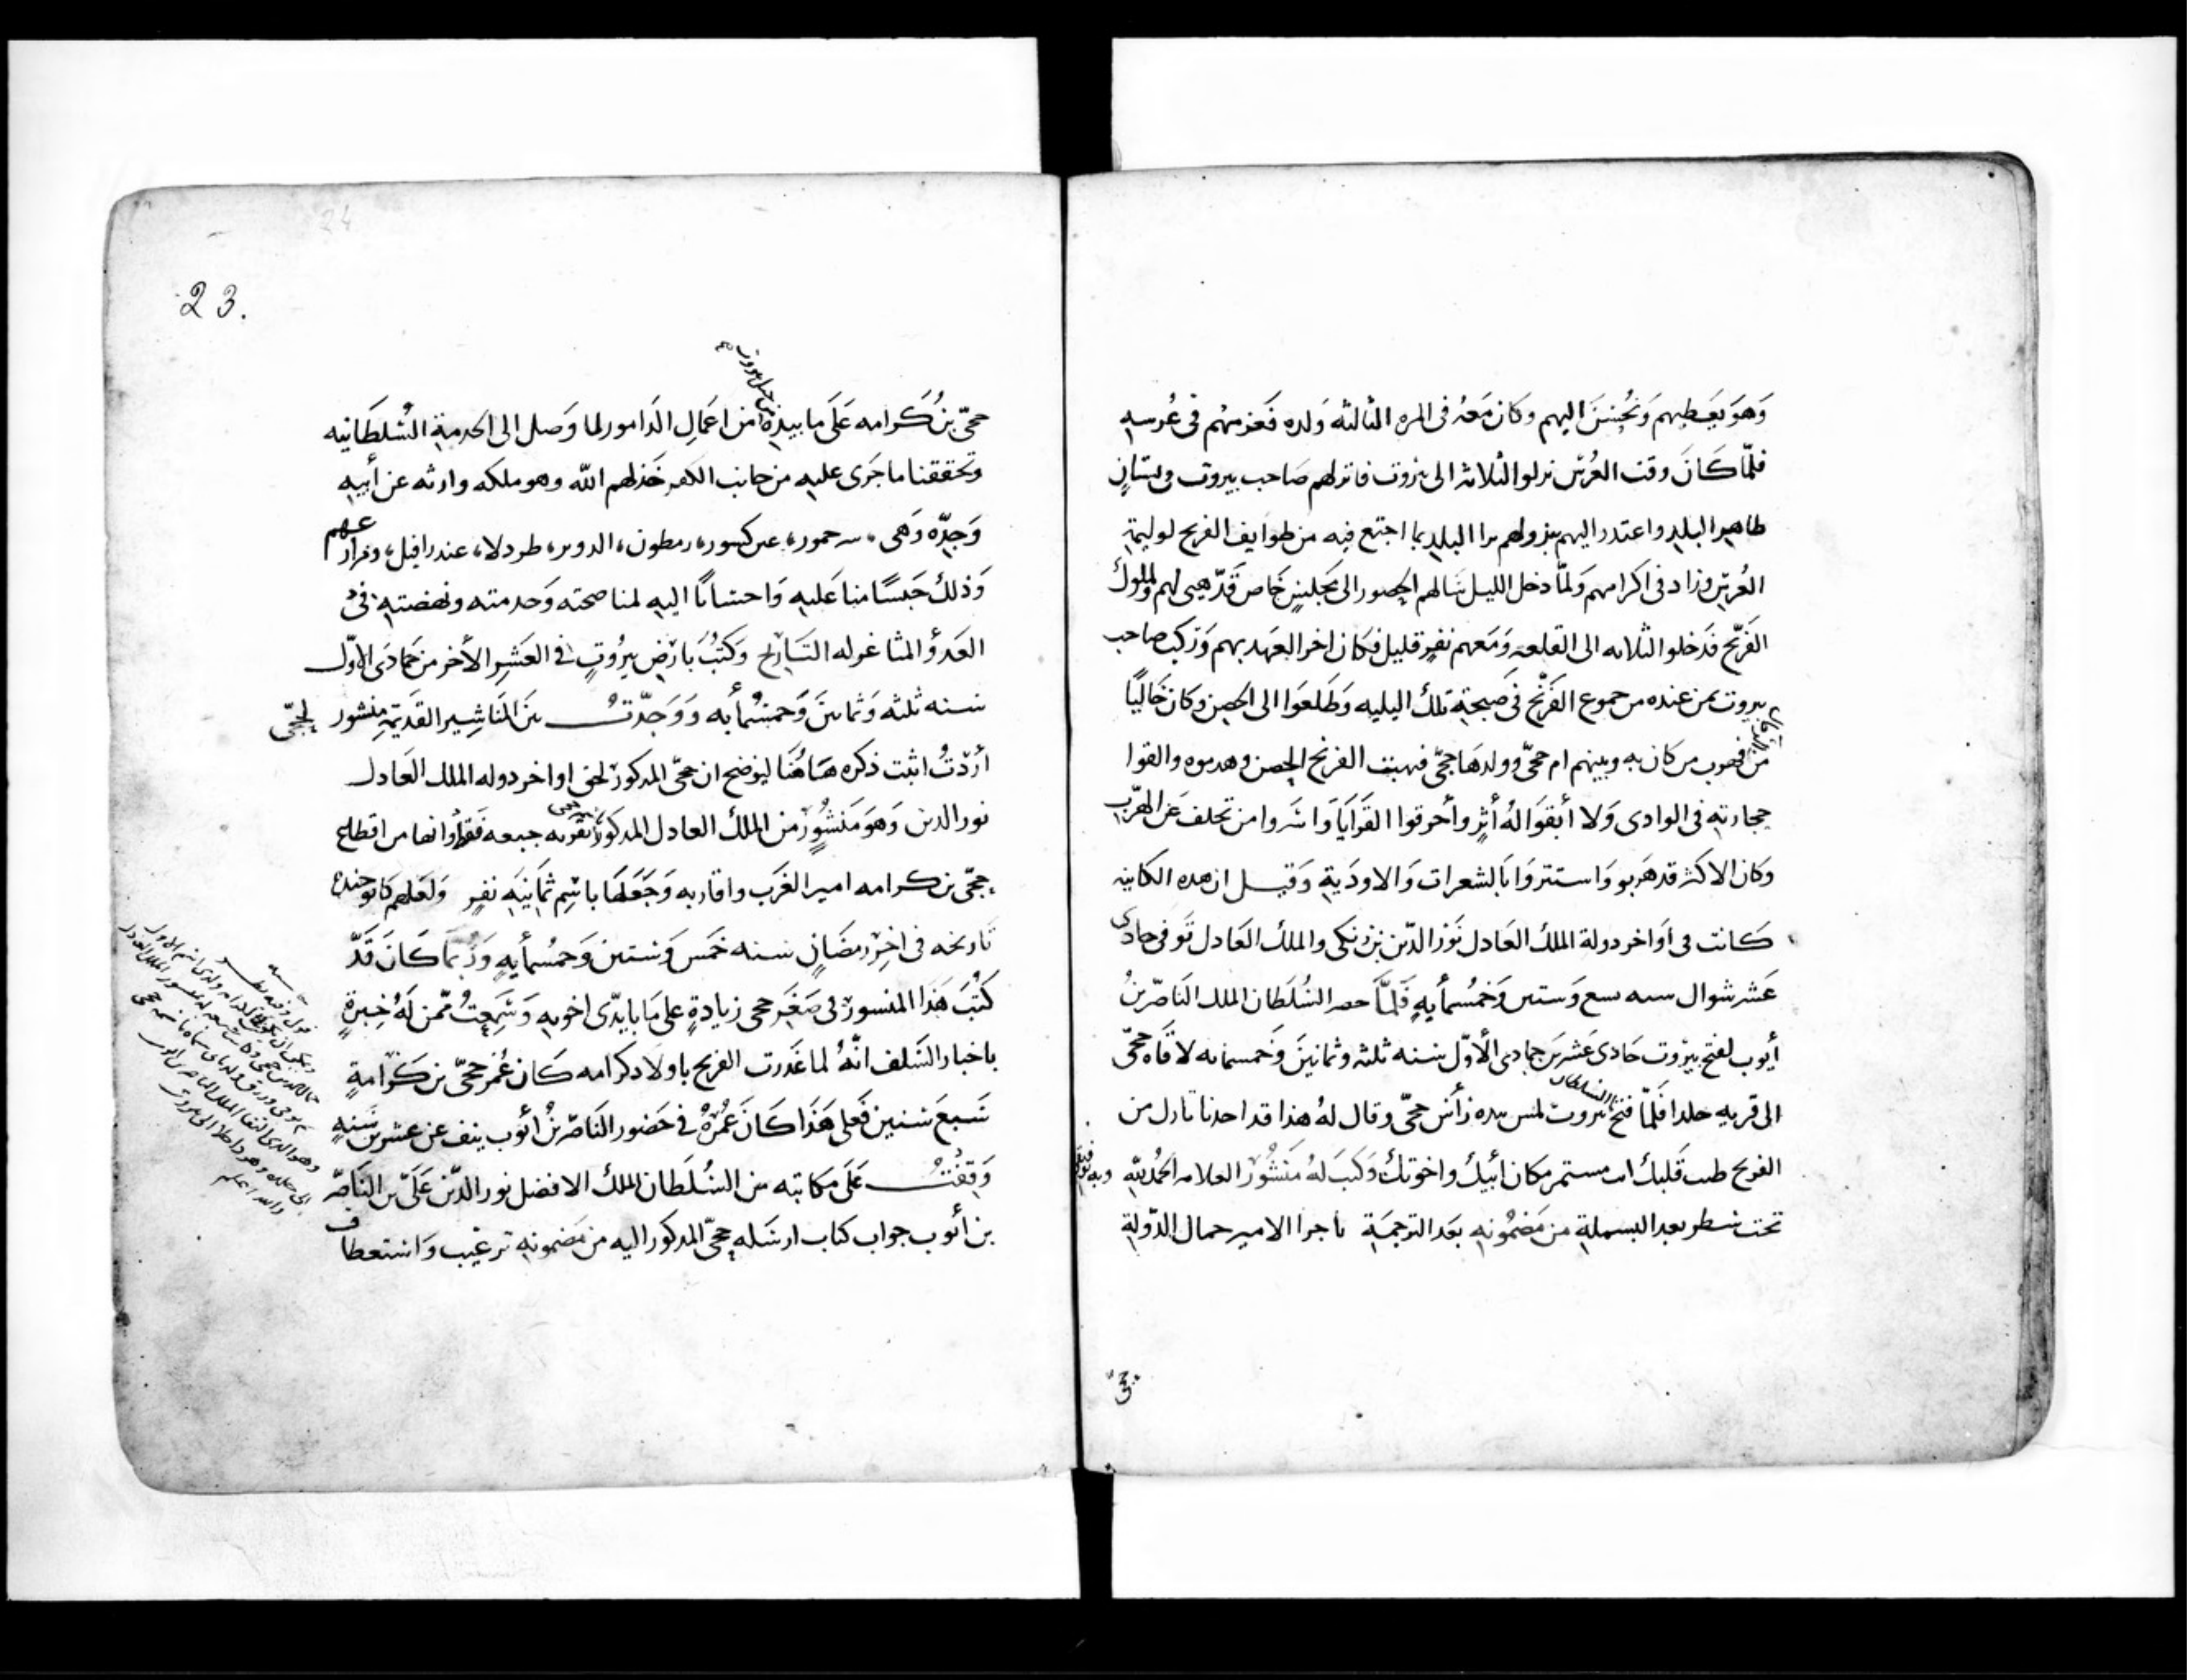 وَهوَ يعَطيهم وَيُحسنَ اليهم وكان مَعهُ فى المره الثالثه وَلده فَعَزمهُم فى عُرسه
فلمّا كَانَ وقت العُرس نزلو الثلاثه الى بيروت فانزلهم صَاحب بيروت فى بستانٍ
ظاهر البلد واعتذر اليهم بنزولهم برا البلد بما اجتمع فيه من طوايف الفرنج لوليمة
العُرس وزاد فى اكرامهم وَلمّا دخل الليل سَالهم الحصور الى مَجلسٍ خَاص قَدّ هيى لهم ولملوك
الفَرنج فَدخلوا الثلاثه الى القلعه وَمَعهم نفرٍ قليل فكان اخر العَهد بهم وَرَكب صاحب
بيروت بمن عنده من جموع الفَرَنْج فى صَبيحة تلك اليليه وَطَلعَوا الى الحصن وكان خَاليًا
من الرجال
فهرب من كان به وبينهم ام حجّى وولدهَا حجّى فهبت الفرنج الحصن وهدموه والقوا
حجارته فى الوادى وَلا أبقوَا لهُ أثرٍ وأحرقوا القَرَايَا وَاسَروا من تخلف عَن الهرّب
وكان الاكثر قد هَربو وَاستتروَا بَالشعرات وَالاودَية وَقيل ان هده الكاينه
كانت فى أوَاخر دولة الملك العَادل نَوْر الدّين بن زنكى والملك العَادل تَوفى حادى
عَشر شوال سنه تسع وَستين وَخَمُسمأيه فَلمَّا حصر السُلطَان الملك النَاصّر بنُ
أيوب لفتح بيزوت حَادى عَشرين جمادى الأوّل سنه ثلثه وثمانينَ وَخمسمايه لاقَاه حجّى
الى قريه خلدا فَلَمّا فتح السُلطان بيروت لمس بيده رَأَس حجّى وقال لهُ هذا قد اخدنا ثارك من
الفرنج طيب قَلبك انت مستمر مكان أبيكَ واخوتكَ وَكتبَ لهُ مَنشُورْ العلامه الحَمُد للهِ وبه توفيقى
تحت سطر بعد البسملة من مَضمُونه بعَد الترجَمَة باجرا الامير جمال الدّولة
حجى
23.
24
حجّى بنُ كَرامه عَلىَ ما بيده من جبل بيروت من اعمَالِ الدَامور لما وَصل الى الخدمة السُلطَانيه
وتحققنا ما جَرى عليه من جانب الكفر خَذلهم اللّه وهو ملكه وارثه عن أبيه
وَجدّه وَهى سرحمور، عين كسور، رمطون، الدوير، طردلا، عندرافيل، ومزارعهم
وَذلك حَبسًا منا عَليه وَاحسانًا اليه لمناصحته وَخدمته ونهضته فى
العَدوُّ المثاغر له التَاريخ وَكتُبَ بارْض بيرُوت فى العَشرِ الأخر من جمَادَى الاوّل
سنه ثلثه وَثمانينَ وَخَمسُمأيه وَوَجَدّتُ بين المنَاشير القَديمة مِنشور لحجّى
أرَدّتُ اثبت ذكره هَاهُنَا ليوَضح ان حجّى المدكور لحق اواخر دوله الملك العَادل
نور الدين وَهوَ مَنشُوٍرْ من الملك العادل المدكور لحجى بقريه جبعه فَقرأوانها من اقطاع
حجّى بن كرامه امير الغَرب واقاربه وَجَعَلهَا باسِم ثمَانيَه نفرٍ وَلعَلهم كانو جنده
تَاريخه فى اخِر رمضَانٍ سنه خَمَس وَستين وَخمُسمأيه وَرُبمَا كَانَ قَدّ
كتُبَ هَذا المنسور فى صغَر حجى زيادةٍ على مَا بايدّى اخوته وَسَمِعتُ ممّن لَهُ خِبرةٍ
باخبار السَلف انَّهُ لما غَدرت الفرنج باولاد كرامه كَان عُمر حجّى بن كَرَامةٍ
سَبعَ سنين فَعلى هَذَا كَانَ عمُرهُ فى حَضور النَاصّر بنُ أيوب ينف عن عشرين سَنهٍ
وَقفتُ عَلىَ مكَاتبه من السُلطَان الملك الافضل نور الدّين عَلَىّ بن النَاصّر
بن أيوب جواب كتاب ارسَله حجّى المدكور اليه من مَضمونه ترغيب وَاستعطاف
والله اعلم